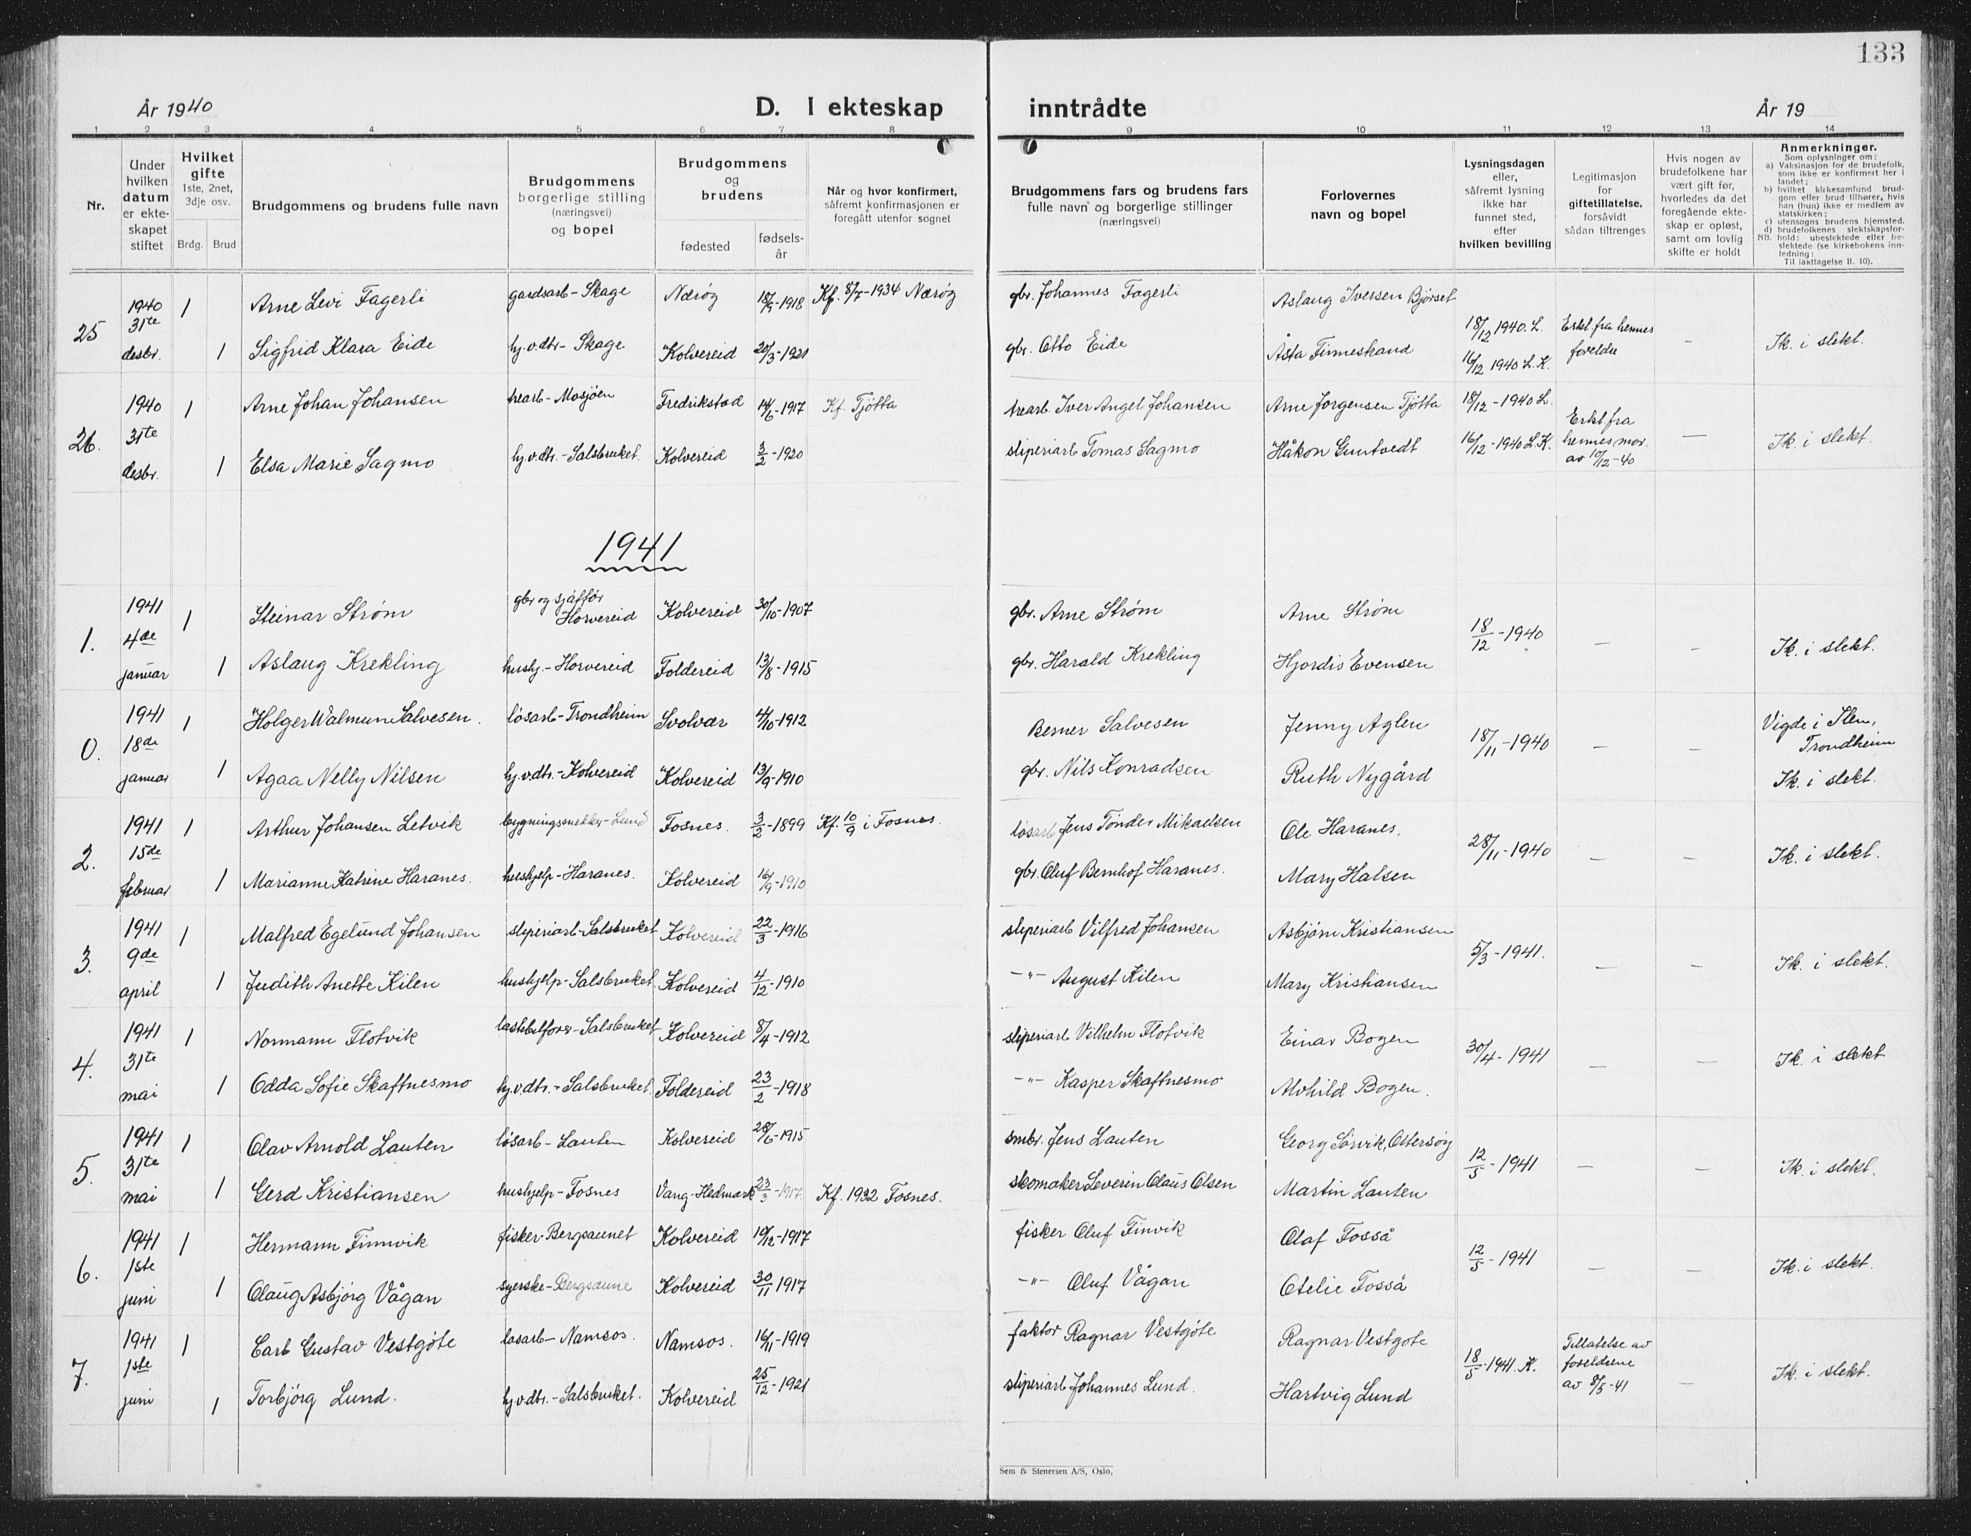 133
År 1940
D. I ekteskap inntrådte
År 19
1 2 3 4 5 6 7 8 9 10 11 12 13 14
Nr.
Under hvilken datum er ekteskapet stiftet
Hvilket gifte 1ste, 2net, 3dje osv.
Brdg. Brud
Brudgommens og brudens fulle navn
Brudgommens borgerlige stilling (næringsvei) og bopel
Brudgommens og brudens
fødested
fødselsår
Når og hvor konfirmert, såfremt konfirmasjonen er foregått utenfor sognet
Brudgommens fars og brudens fars fulle navn og borgerlige stillinger (næringsvei)
Forlovernes navn og bopel
Lysningsdagen eller, såfremt lysning ikke har funnet sted, efter hvilken bevilling
Legitimasjon for giftetillatelse, forsåvidt sådan tiltrenges
Hvis nogen av brudefolkene har vært gift før, hvorledes da det foregående ekteskap er opløst, samt om lovlig skifte er holdt
Anmerkninger.
Som oplysninger om:
a) Vaksinasjon for de brudefolk, som ikke er konfirmert her i landet;
b) hvilket kirkesamfund brudgom eller brud tilhører, hvis han (hun) ikke er medlem av statskirken;
c) utensogns brudens hjemsted.
d) brudefolkenes slektskapsforhold: ubeslektede eller beslektede (se kirkebokens innledning:
NB.
Til iakttagelse II. 10).
25 1940 31te desbr. 1 Arne Levi Fagerli gardsarb - Skage Nærøy 18/5-1918 Kf. 8/7-1934 Nærøy gbr. Johannes Fagerli Aslaug Iversen Bjørset 18/12 1940. L. Erkl. fra hennes foreldre - Ik. i slekt.
1 Sigfrid Klara Eide hj.v.dtr - Skage Kolvereid 20/3-1921 gbr. Otto Eide Åsta Finnestrand 16/12 1940 L. K.
26. 1940 31te desbr. 1 Arne Johan Johansen trearb - Mosjøen Fredrikstad 14/6-1917 Kf. Tjøtta trearb. Iver Angel Johansen Arne Jørgensen Tjøtta 18/12-1940 L. Erkl. fra hennes mor. av 10/12-40 - Ik. i slekt.
1 Elsa Marie Sagmo hj.v.dtr. - Salsbruket Kolvereid 3/2-1920 sliperiarb Tomas Sagmo Håkon Guntvedt 16/12-1940 L. K.
1941
1. 1941 4de januar 1 Steinar Strøm gbr og sjåffør Horvereid Kolvereid 30/10-1907 gbr. Arne Strøm Arne Strøm 18/12-1940 - - Ik. i slekt.
1 Aslaug Krekling hushj. - Horvereid Foldereid 13/8-1915 gbr. Harald Krekling Hjordis Evensen
0. 1941 18de januar 1 Holger Walmune Salvesen. løsarb - Trondheim Svolvær 4/10-1912 Berner Salvesen Jenny Aglen 18/11-1940 - - Vigde i Ilen, Trondheim
1 Agaa Nelly Nilsen hj.v.dtr. - Kolvereid Kolvereid 13/9-1910 gbr. Nils Konradsen Ruth Nygård Ik. i slekt.
2. 1941 15de februar 1 Arthur Johansen Letvik bygningssnekker - Lund Fosnes. 3/2-1899 Kf. 10/9 i Fosnes. løsarb Jens Tønder Mikaelsen Ole Haranes. 28/11-1940 - - Ik. i slekt.
1 Marianne Katrine Haranes. hushjelp - Haranes. Kolvereid 16/9-1910 gbr. Oluf Bernhof Haranes. Mary Halsen
3. 1941 9de april 1 Malfred Egelund Johansen sliperiarb - Salsbruket Kolvereid 22/3-1916 sliperiarb Vilfred Johansen Asbjørn Kristiansen 5/3-1941. - - Ik. i slekt.
1 Judith Anette Kilen hushjelp - Salsbruket Kolvereid 4/12-1910 -"- August Kilen Mary Kristiansen
4. 1941 31te mai 1 Normann Flotvik lastebilfører - Salsbruket Kolvereid 8/4-1912 sliperiarb Vilhelm Flotvik Einar Bogen 30/4-1941 - - Ik. i slekt
1 Odda Sofie Skaftnesmo hj.v.dtr. - Salsbruket. Foldereid 23/2-1918 -"- Kasper Skaftnesmo Alvhild Bogen.
5. 1941 31te mai 1 Olav Arnold Lauten løsarb - Lauten Kolvereid 28/6-1915 smbr. Jens Lauten Georg Sørvik, Ottersøy 12/5-1941 - - Ik. i slekt.
1 Gerd Kristiansen hushjelp - Fosnes Vang-Hedmark 23/3-1917 Kf. 1932 Fosnes. skomaker Severin Olaus Olsen Martin Lauten
6. 1941 1ste juni 1 Hermann Finnvik fisker - Bergsaunet Kolvereid 19/12-1917 fisker Oluf Finvik Olaf Fosså 12/5-1941 - - Ik. i slekt.
1 Olaug Asbjørg Vågan syerske - Bergsaune Kolvereid 30/11 1917 -"- Oluf Vågan Otelie Fosså
7. 1941 1ste juni 1 Carl Gustav Vestgöte løsarb - Namsos. Namsos. 16/11-1919 faktor Ragnar Vestgöte Ragnar Vestgöte 18/5-1941. K. Tillatelse av foreldrene av 8/5-41 - Ik. i slekt.
1 Torbjørg Lund. hj.v.dtr. - Salsbruket. Kolvereid 25/12-1921 sliperiarb Johannes Lund. Hartvig Lund
Sem & Stenersen A/S, Oslo.